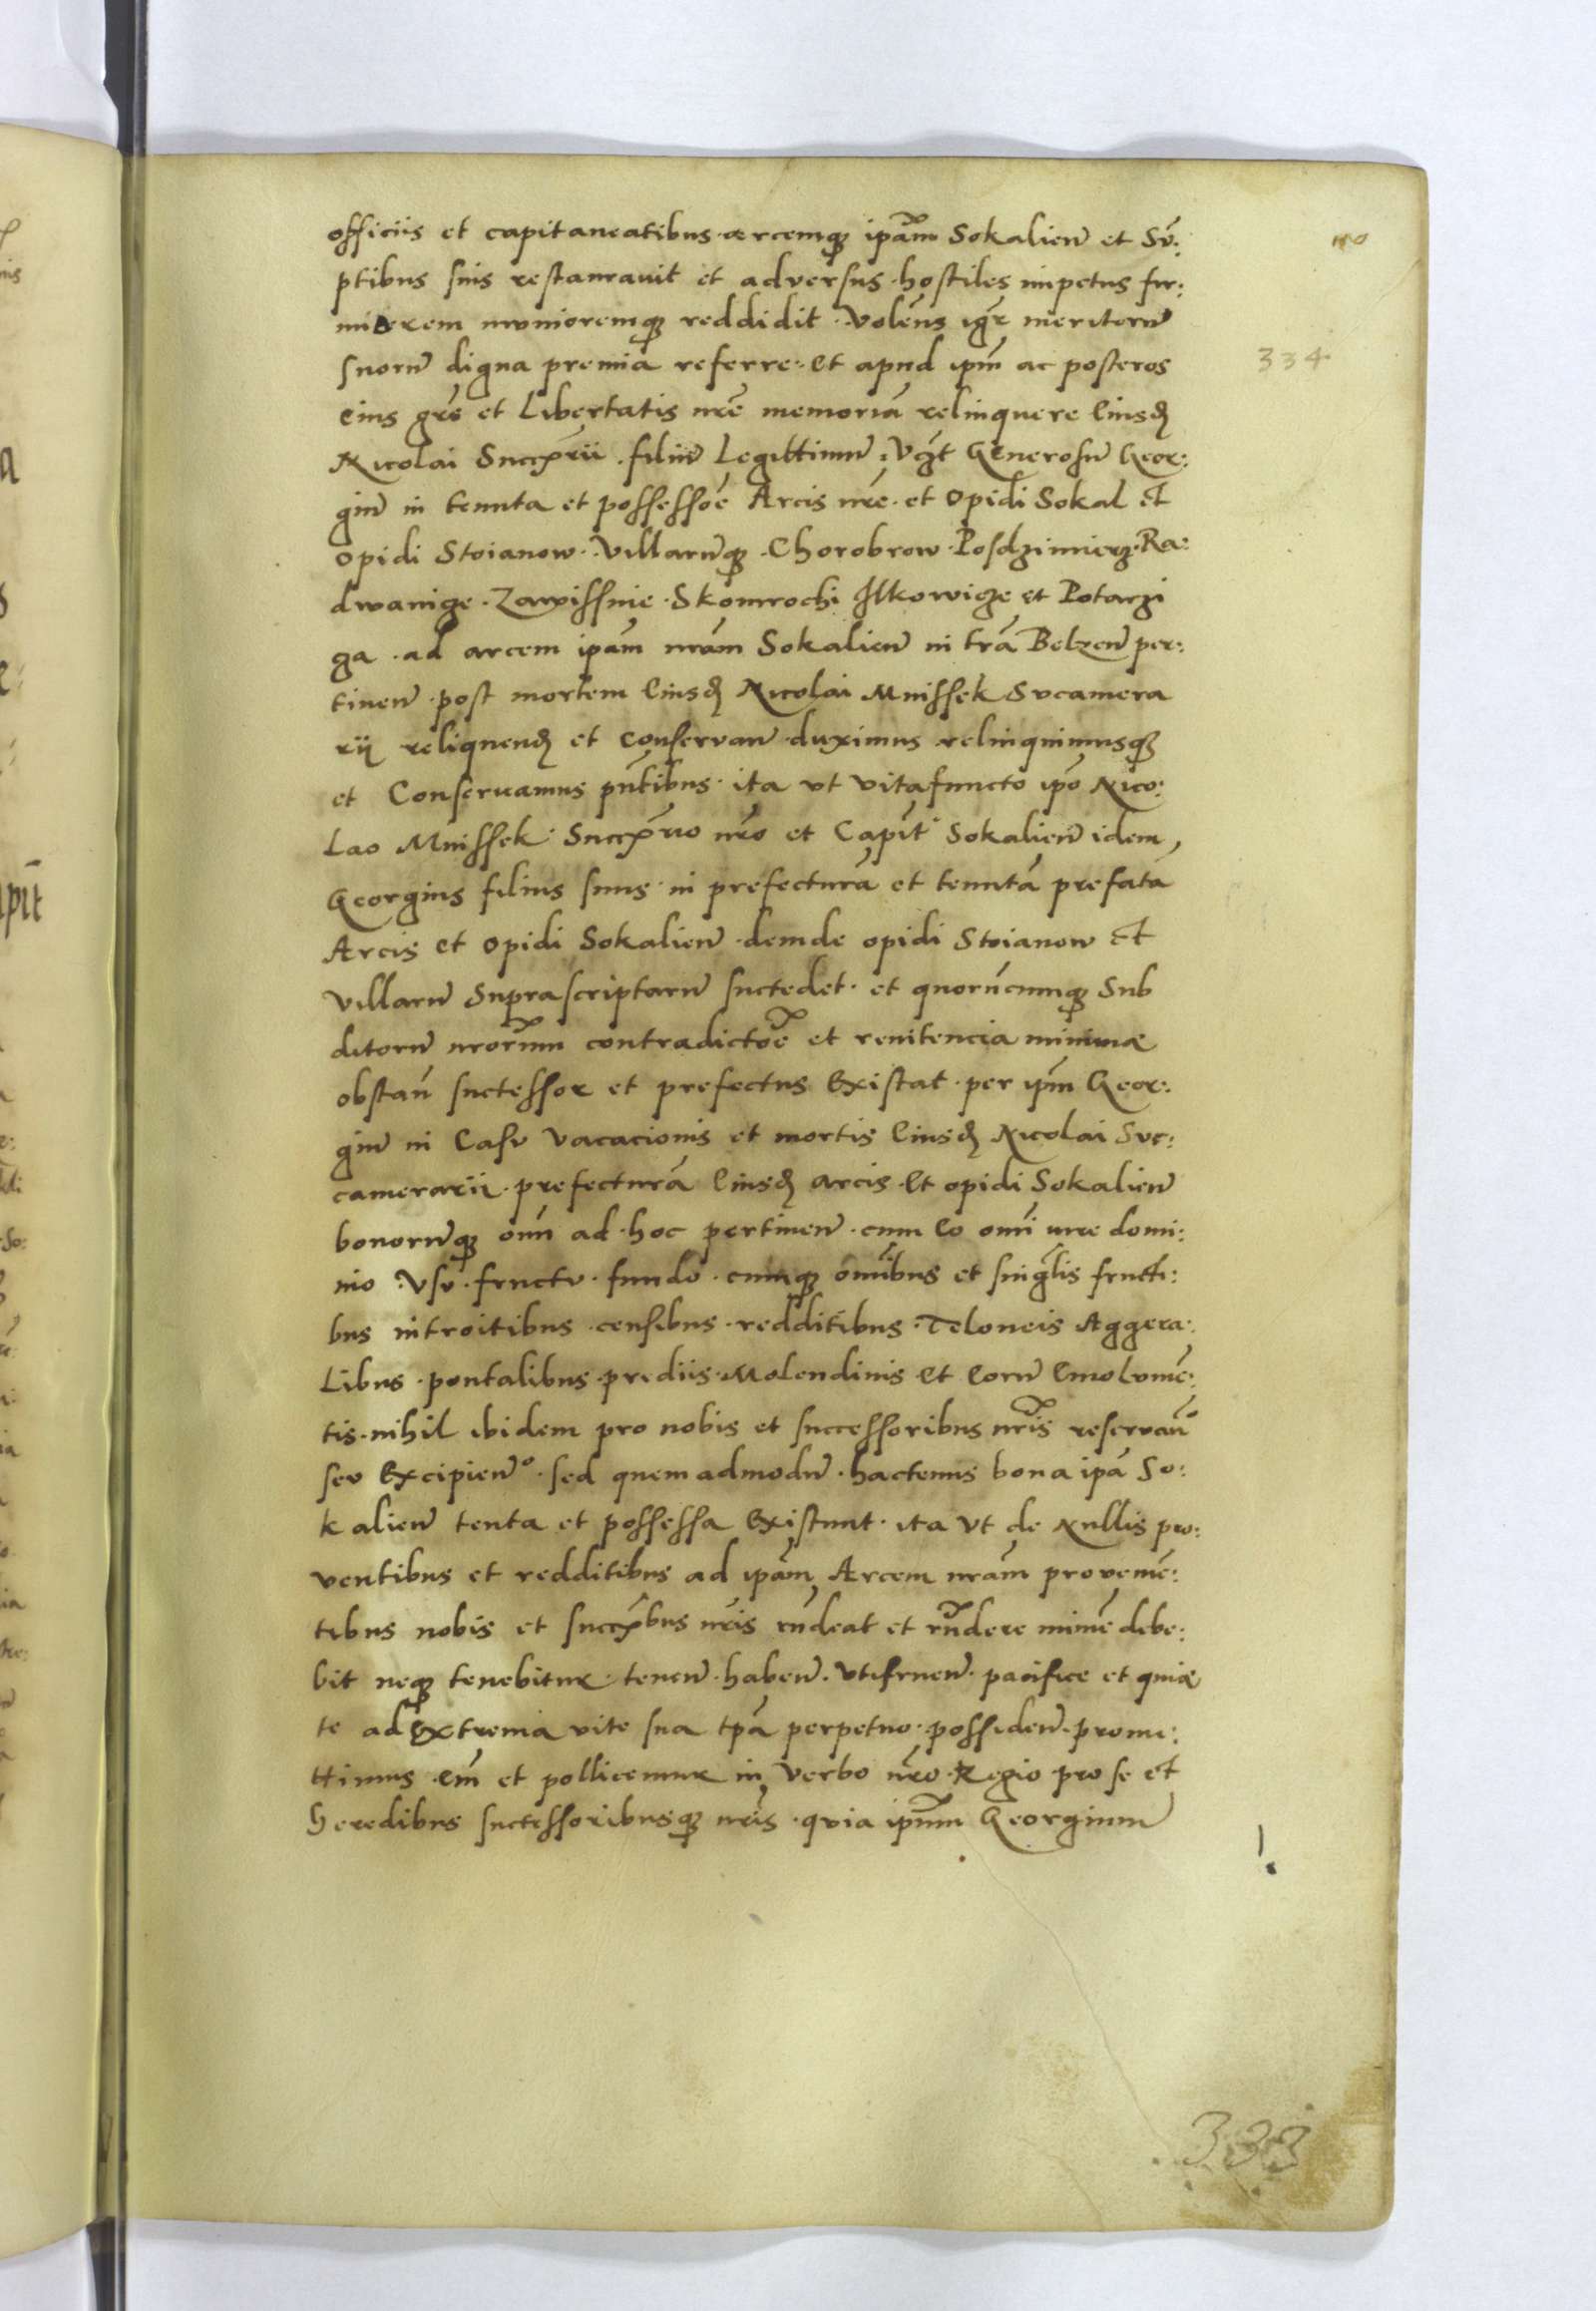 officiis et capitaneatibus · arcemqꝫ ipam̃ Sokalien̄ et Sū:
ptibus suis restaurauit et adversus · hostiles impetus fir:
miorem munioremqꝫ reddidit · Volens igr̃ meritorū
suorū digna premia referre · et apud ipm̄ ac posteros
eius gr̃e et Libertatis nr̃e memoriā relinquere eiusd̛
Nicolai Succr̃ii · filiū Legittimū · Vcꝫt Generosū Geor:
giū in tenuta et possessōe Arcis nr̃e · et opidi Sokal et
opidi Stoianow · Villarūqꝫ · Chorobrow · Posdzimierz · Ra:
dwanige · Zawissnie · Skomrochi Ilkowicze et Potarzi
ga · ad arcem ipām nrām Sokalien̄ in trā Belzen̄ per:
tinen̄ · post mortem eiusd̛ Nicolai Mnissek Svcamera
rij reliquend̛ et conservan̄ · duximus relinquimusqꝫ
et Conseruamus pn̄tibus · ita vt vitafuncto ipō Nico:
Lao Mnissek · Succr̃io nr̃o et Capit̃ · Sokalien̄ idem
Georgius filius suus · in prefecturā et tenutā prefatā
Arcis et opidi Sokalien̄ · deinde opidi Stoianow et
Villarū Suprascriptarū suctedet · et quorūcumqꝫ Sub
ditorū nrorum̃ contradictōe et renitencia minime
obstan̄ suctessor et prefectus existat · per ipm̄ Geor:
giū in Casu vacacionis et mortis eiusd̛ Nicolai Suc:
camerarii · prefecturā eiusd̛ arcis et opidi Sokalien̄
bonorūqꝫ om̄ ad · hoc pertinen̄ · cum eo omī iure domi:
nio · vsu · fructu · fundo · cumqꝫ om̄ibus et singl̃is fructi:
bus introitibus · censibus · redditibus · Teloneis Aggera:
Libus · pontalibus · prediis · Molendinis et eorū emolumē:
tis · nihil ibidem pro nobis et successoribus nr̃is reservan̄
seu excipien̄ᵒ · sed quem admodū · hactenus bona ipā So:
k alien̄ tenta et possessa existunt · ita vt de nullis pro:
ventibus et redditibus ad ipām Arcem nrām proveniē:
tibus nobis et succr̃bus nr̃is rn̄deat et rn̄dere minīe debe:
bit neqꝫ tenebitur · tenen̄ · haben̄ · vtifruen̄ · pacifice et quie
te ad extrema vite sua tpā perpetuo · possiden̄ · promi:
ttimus · em̄ et pollicemur in verbo nr̃o · Regio pro se et
heredibus suctessoribusqꝫ nr̃is · quia ipum̃ Georgium
334
333